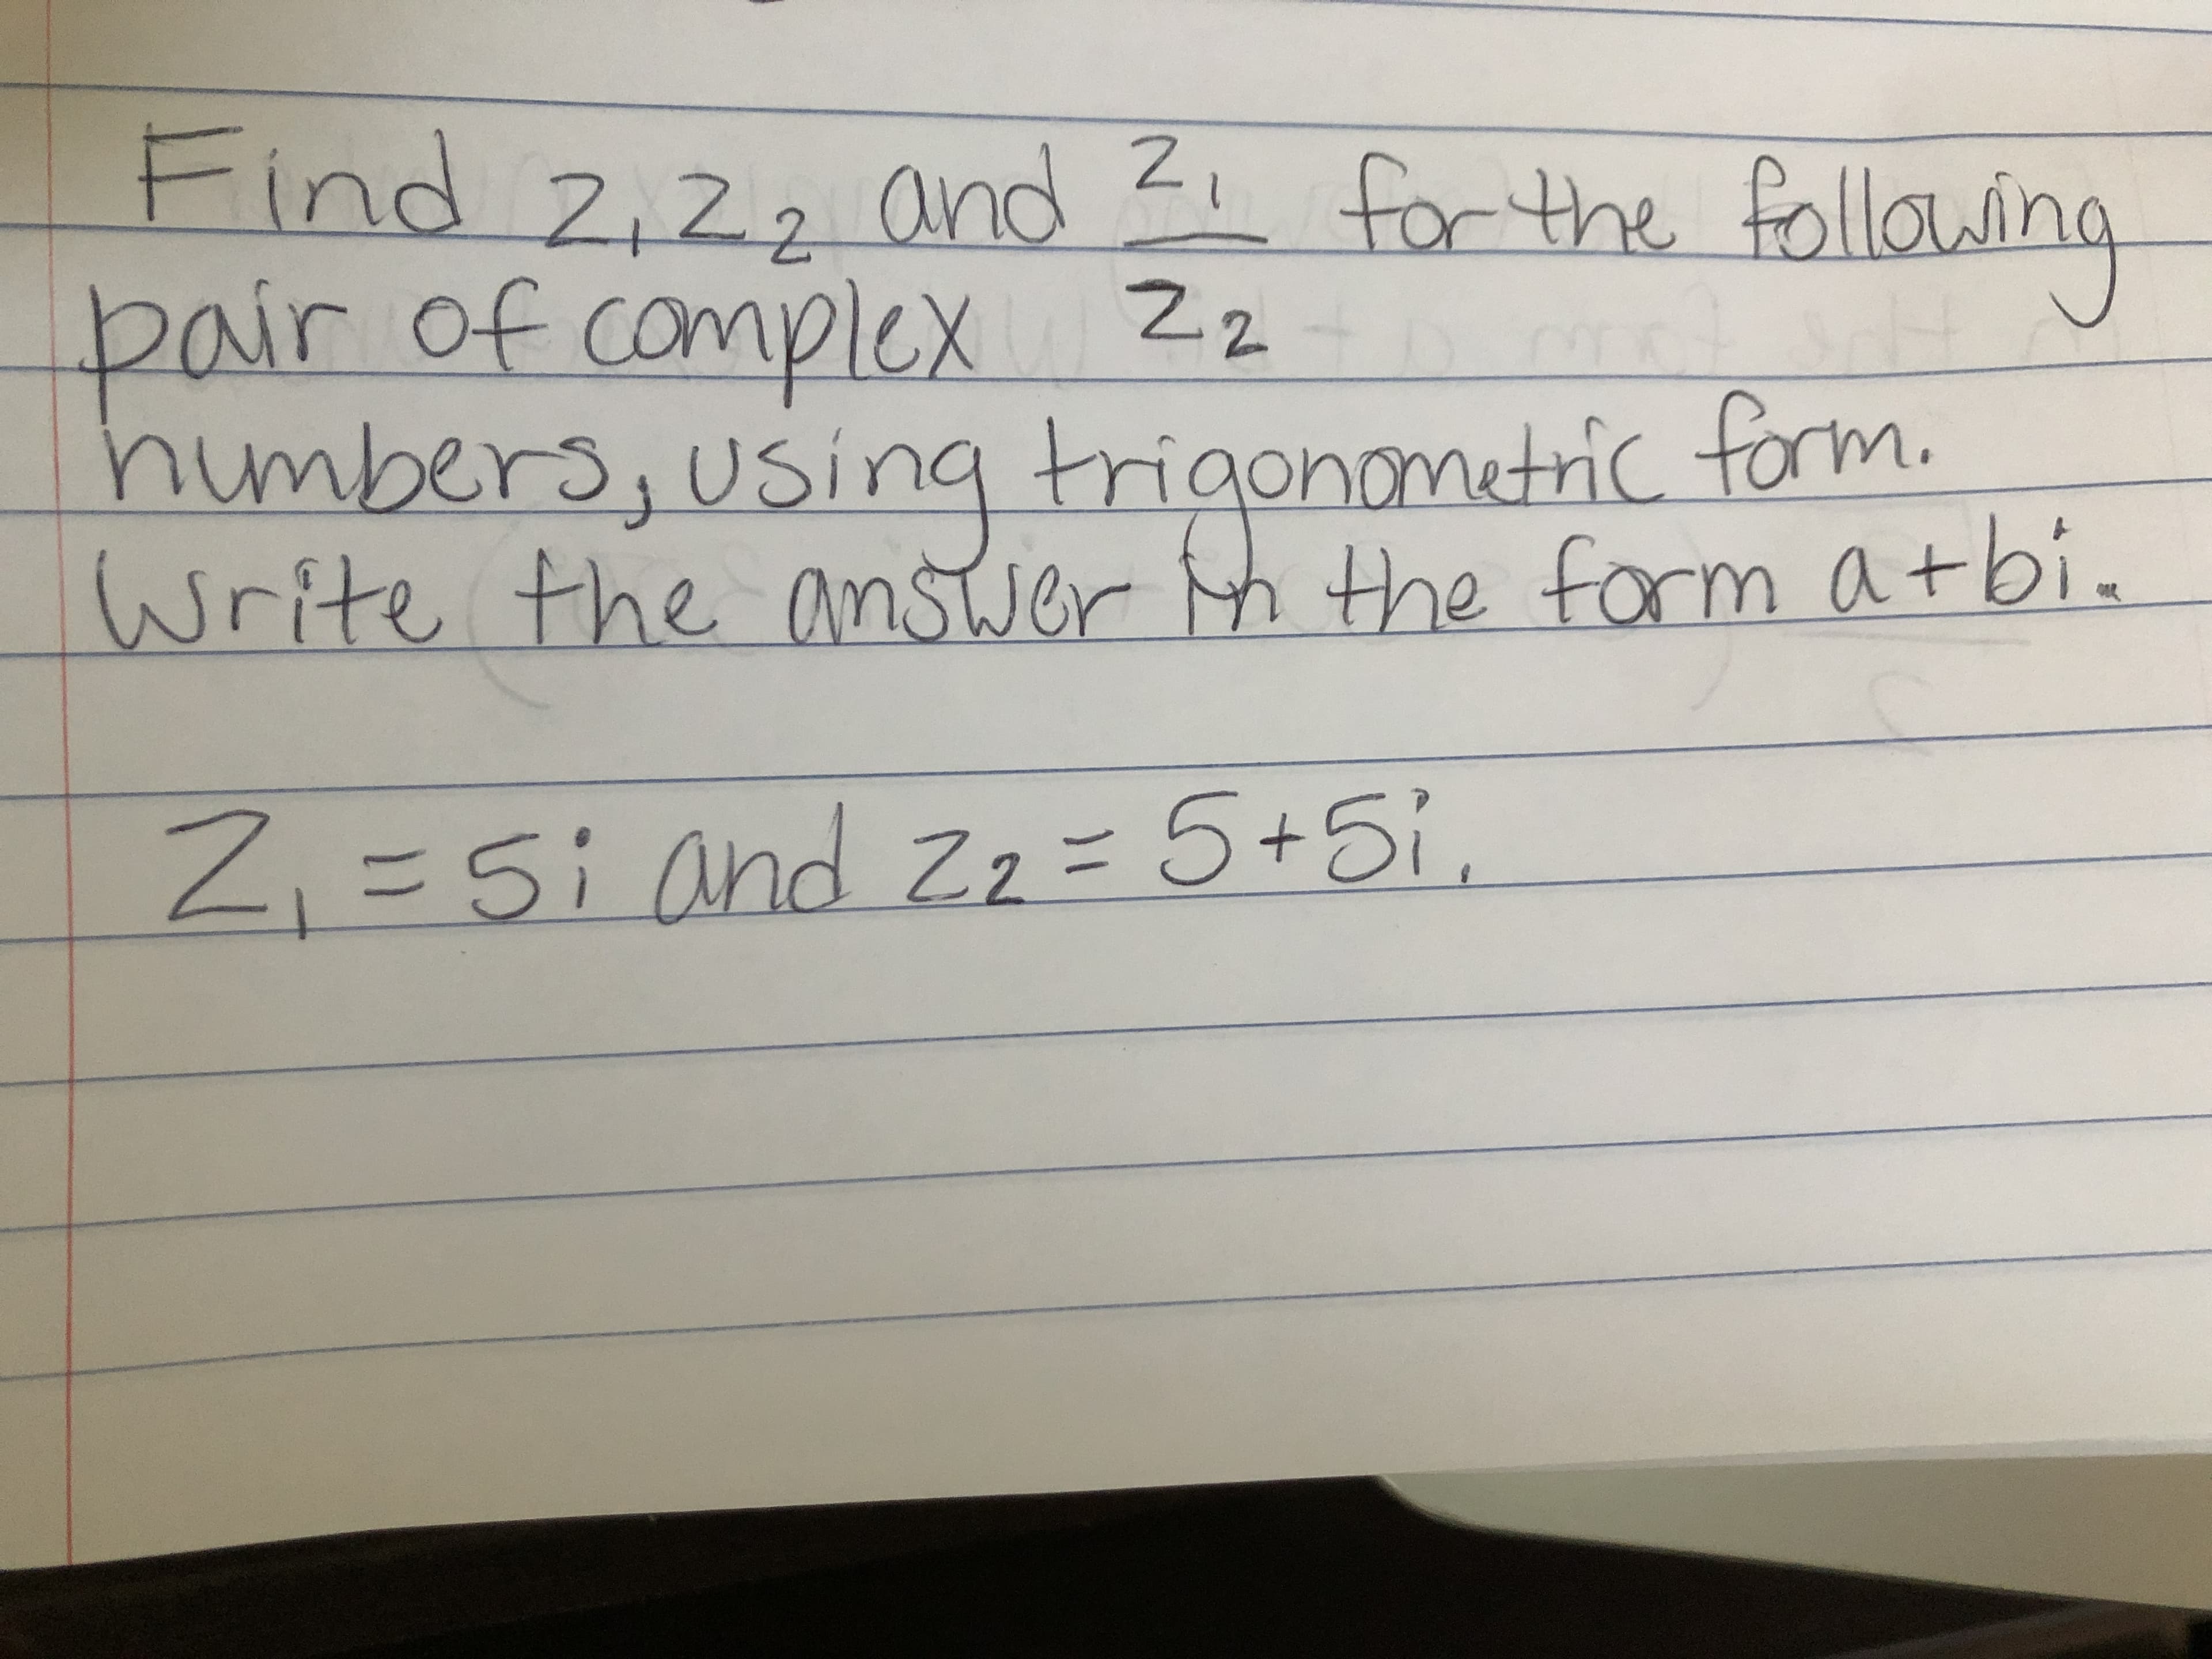 Find z₁z₂ and z₁/z₂ for the following
pair of complex
numbers, using trigonometric form.
Write the answer in the form a+bi.
Z₁ = 5i and z₂ = 5+5i.